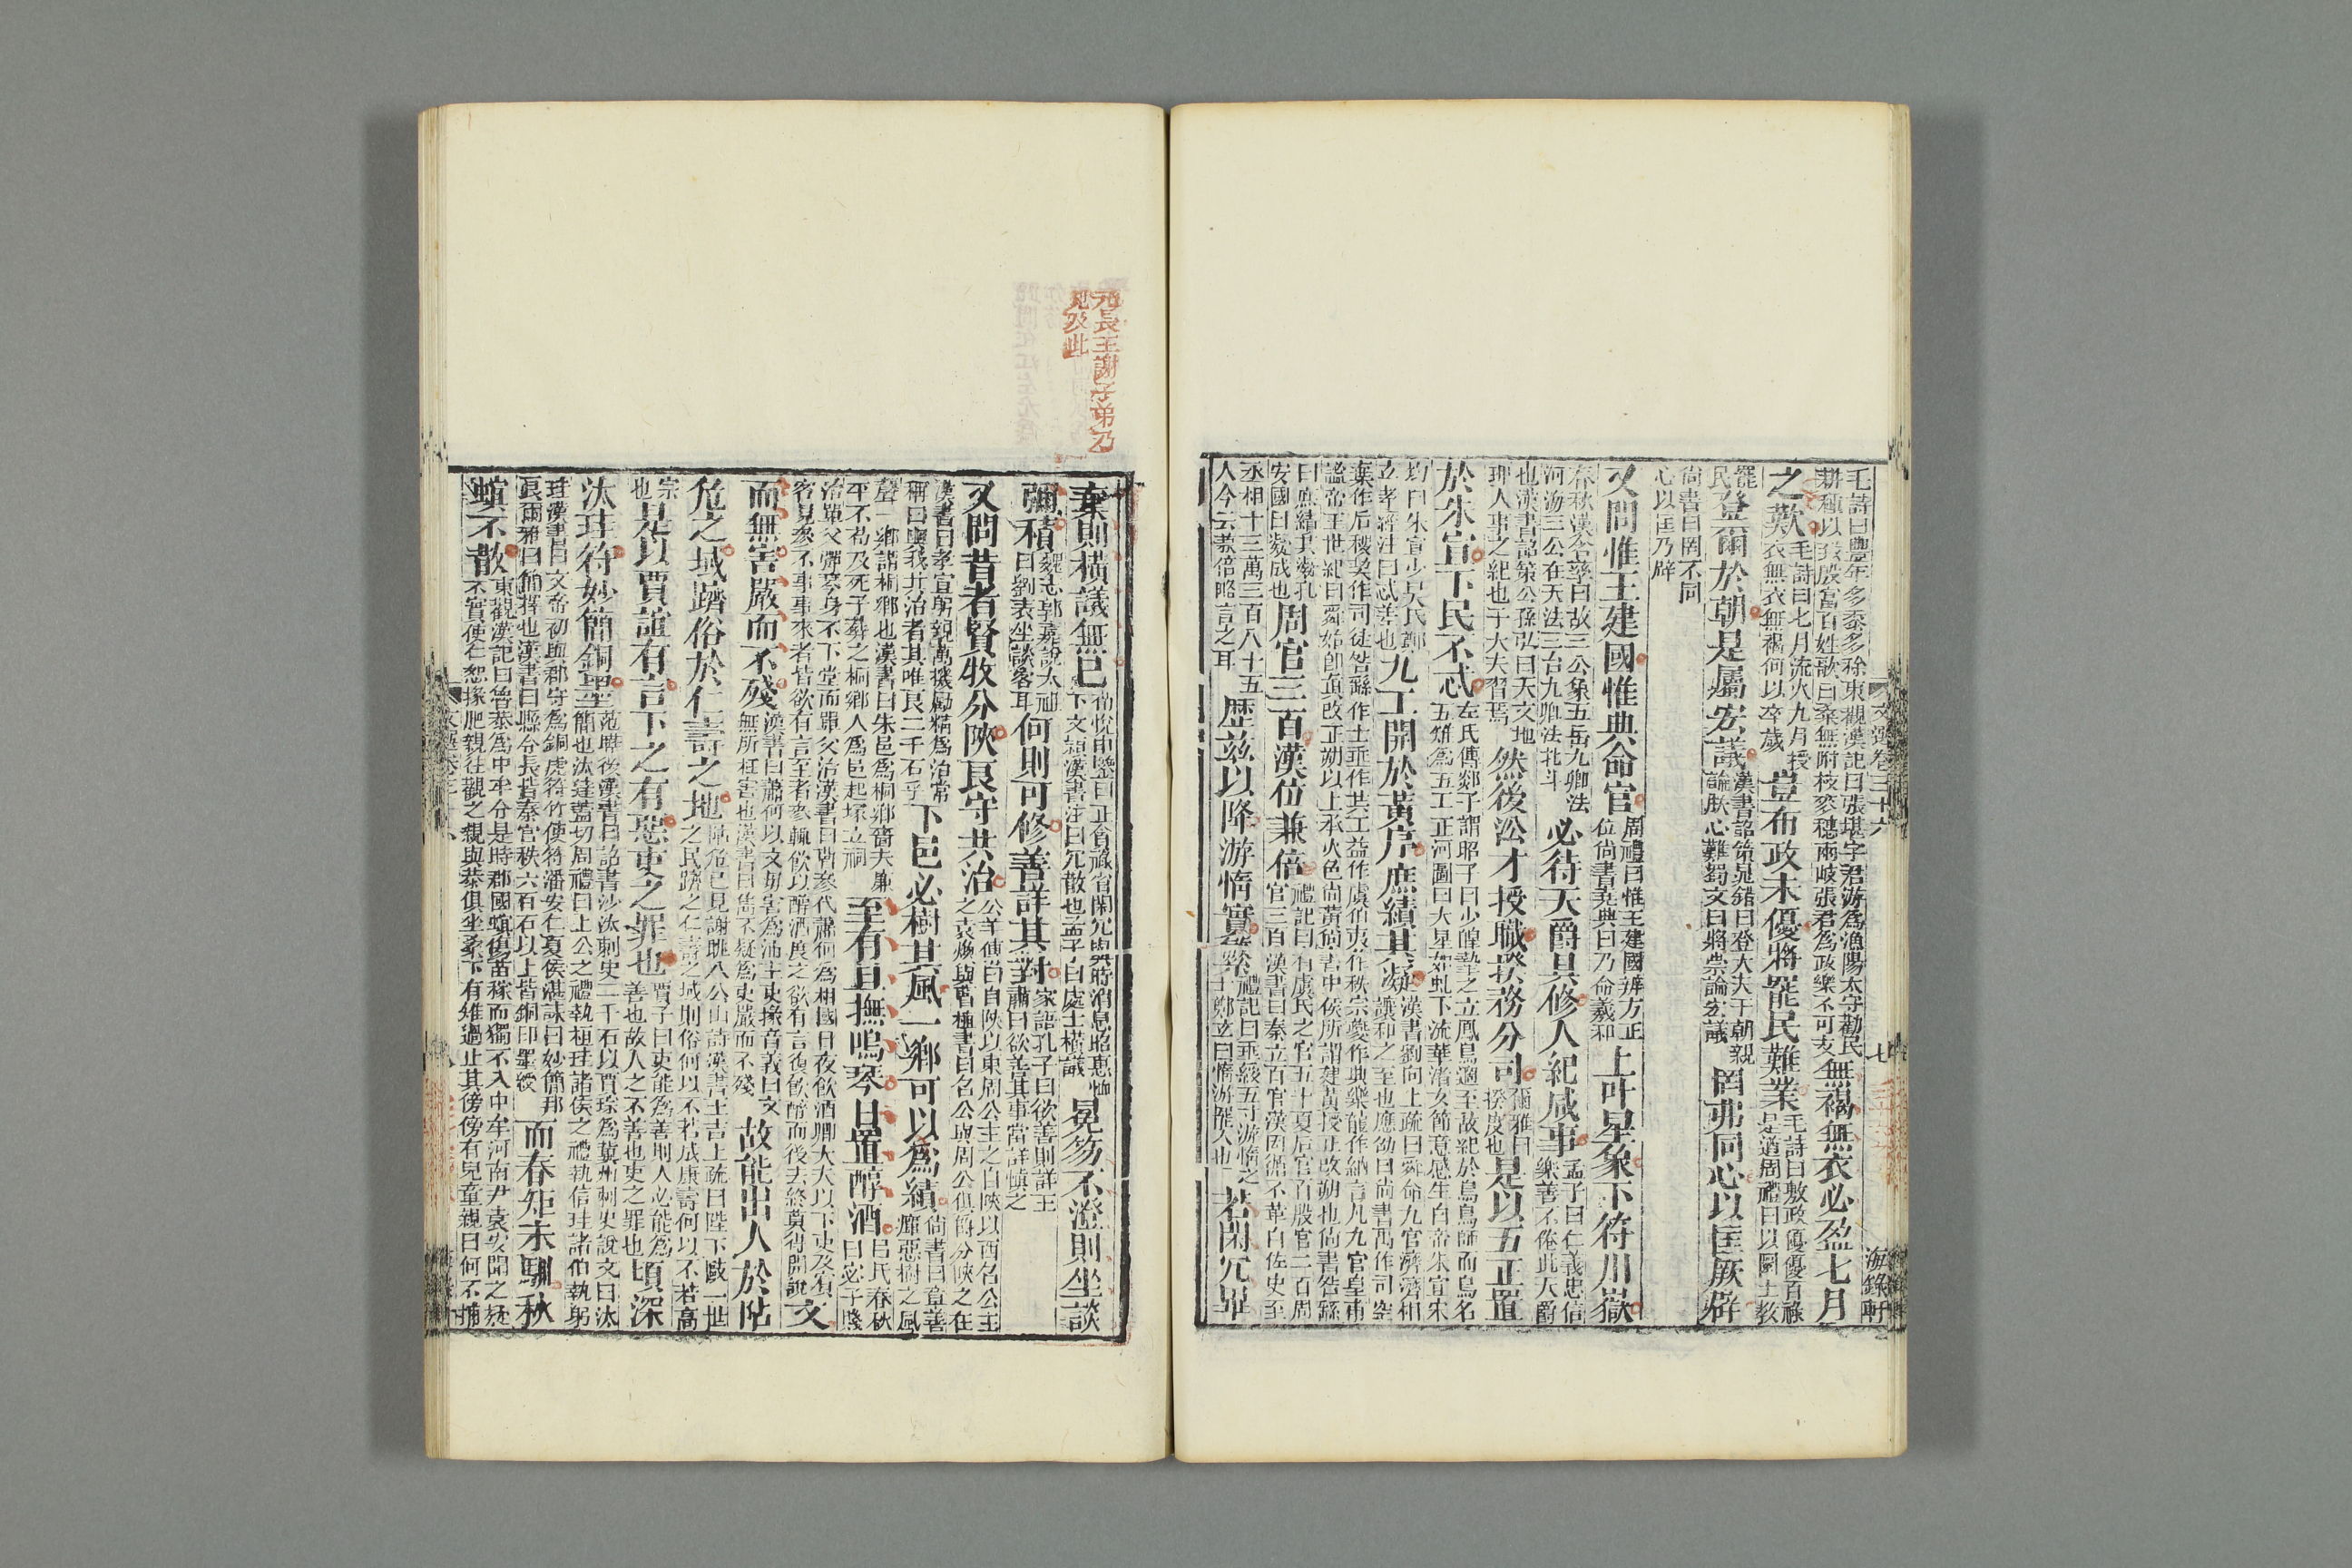 文選卷三十六 七 海錄軒
毛詩曰豐年多黍多稌東觀漢記曰張堪字君游爲漁陽太守勸民
耕種以致殷富百姓歌曰桑無附枝麥穗兩岐張君爲政樂不可支無褐無衣必盈七月
之歎毛詩曰七月流火九月授
衣無衣無褐何以卒歲豈布政未優將罷民難業毛詩曰敷政優優百祿
是遒周禮曰以圜土敎
罷
民登爾於朝是屬宏議漢書詔策晁錯曰登大夫于朝親
論朕心難蜀文曰將崇論宏議罔弗同心以匡厥辟
尙書曰罔不同
心以匡乃辟
又問惟王建國惟典命官周禮曰惟王建國辨方正
位尙書堯典曰乃命羲和上叶星象下符川嶽
春秋漢含孳曰故三公象五岳九卿法
河海三公在天法三台九卿法北斗必待天爵具修人紀咸事孟子曰仁義忠信
樂善不倦此天爵
也漢書詔策公孫弘曰天文地
理人事之紀也子大夫習焉然後㳂才授職揆務分司爾雅曰
揆度也是以五正置
於朱宣下民不忒左氏傳郯子謂昭子曰少皥摯之立鳳鳥適至故紀於鳥鳥師而鳥名
五雉爲五工正河圖曰大星如虹下流華渚女節意感生白帝朱宣宋
均曰朱宣少昊氏鄭
立孝經注曰忒差也九工開於黃序庶績其凝漢書劉向上疏曰舜命九官濟濟相
讓和之至也應劭曰尙書禹作司空
棄作后稷契作司徒咎繇作士垂作共工益作虞伯夷作秩宗夔作典樂龍作納言凡九官皇甫
謐帝王世紀曰舜始卽眞改正朔以土承火色尙黃尙書中候所謂建黃授正改朔也尙書咎繇
曰庶績其凝孔
安國曰凝成也周官三百漢位兼倍禮記曰有虞氏之官五十夏后官百殷官二百周
官三百漢書曰秦立百官漢因循不革自佐史至
丞相十三萬二百八十五
人今云兼倍略言之耳歷茲以降游惰實繁禮記曰垂緌五寸游惰之
士鄭玄曰惰游罷人也若閑冗畢
棄則橫議無已荀悅申鑒曰正貪祿省閑冗與時消息昭惠恤
下文穎漢書注曰冗散也孟子曰處士橫議冕笏不澄則坐談
彌積魏志郭嘉說太祖
曰劉表坐談客耳何則可修善詳其對家語孔子曰欲善則詳王
肅曰欲善其事當詳愼之
又問昔者賢牧分陝良守共治公羊傳曰自陝以東周公主之自陝以西召公主
之袁煥與曹植書曰召公與周公俱爵分陝之在
漢書曰孝宣躬親萬機勵精爲治常
稱曰與我共治者其唯良二千石乎下邑必樹其風一鄉可以爲績尙書曰彰善
癉惡樹之風
聲一鄉謂桐鄉也漢書曰朱邑爲桐鄉嗇夫廉
平不苟及死子葬之桐鄉人爲邑起塚立祠至有旦撫鳴琴日置醇酒呂氏春秋
曰宓子賤
治單父彈琴身不下堂而單父治漢書曰曹參代蕭何爲相國日夜飮酒卿大夫以下吏及賓
客見參不事事來者皆欲有言至者參輒飮以醇酒度之欲有言復飮醉而後去終莫得開說文
而無害嚴而不殘漢書曰蕭何以文毋害爲沛主吏掾音義曰文
無所枉害也漢書曰雋不疑爲吏嚴而不殘故能出人於阽
危之域躋俗於仁壽之地阽危已見謝朓八公山詩漢書王吉上疏曰陛下敺一世
之民躋之仁壽之域則俗何以不若成康壽何以不若高
宗
也是以賈誼有言下之有惡吏之罪也賈子曰吏能爲善則人必能爲
善也故人之不善也吏之罪也頃深
汰珪符妙簡銅墨范曄後漢書曰詔書沙汰刺史二千石以賈琮爲冀州刺史說文曰汰
簡也汰達蓋切周禮曰上公之禮執桓珪諸侯之禮執信珪諸伯執躬
珪漢書曰文帝初與郡守爲銅虎符竹使符潘安仁夏侯湛誄曰妙簡邦
良爾雅曰簡擇也漢書曰縣令長皆秦官秩六百石以上皆銅印墨綬而春雉未馴秋
螟不散東觀漢記曰魯恭爲中牟令是時郡國螟傷苗稼而獨不入中牟河南尹袁安聞之疑
不實使仁恕掾肥親往觀之親與恭俱坐桑下有雉過止其傍傍有兒童親曰何不捕
元長王謝子弟乃
見及此